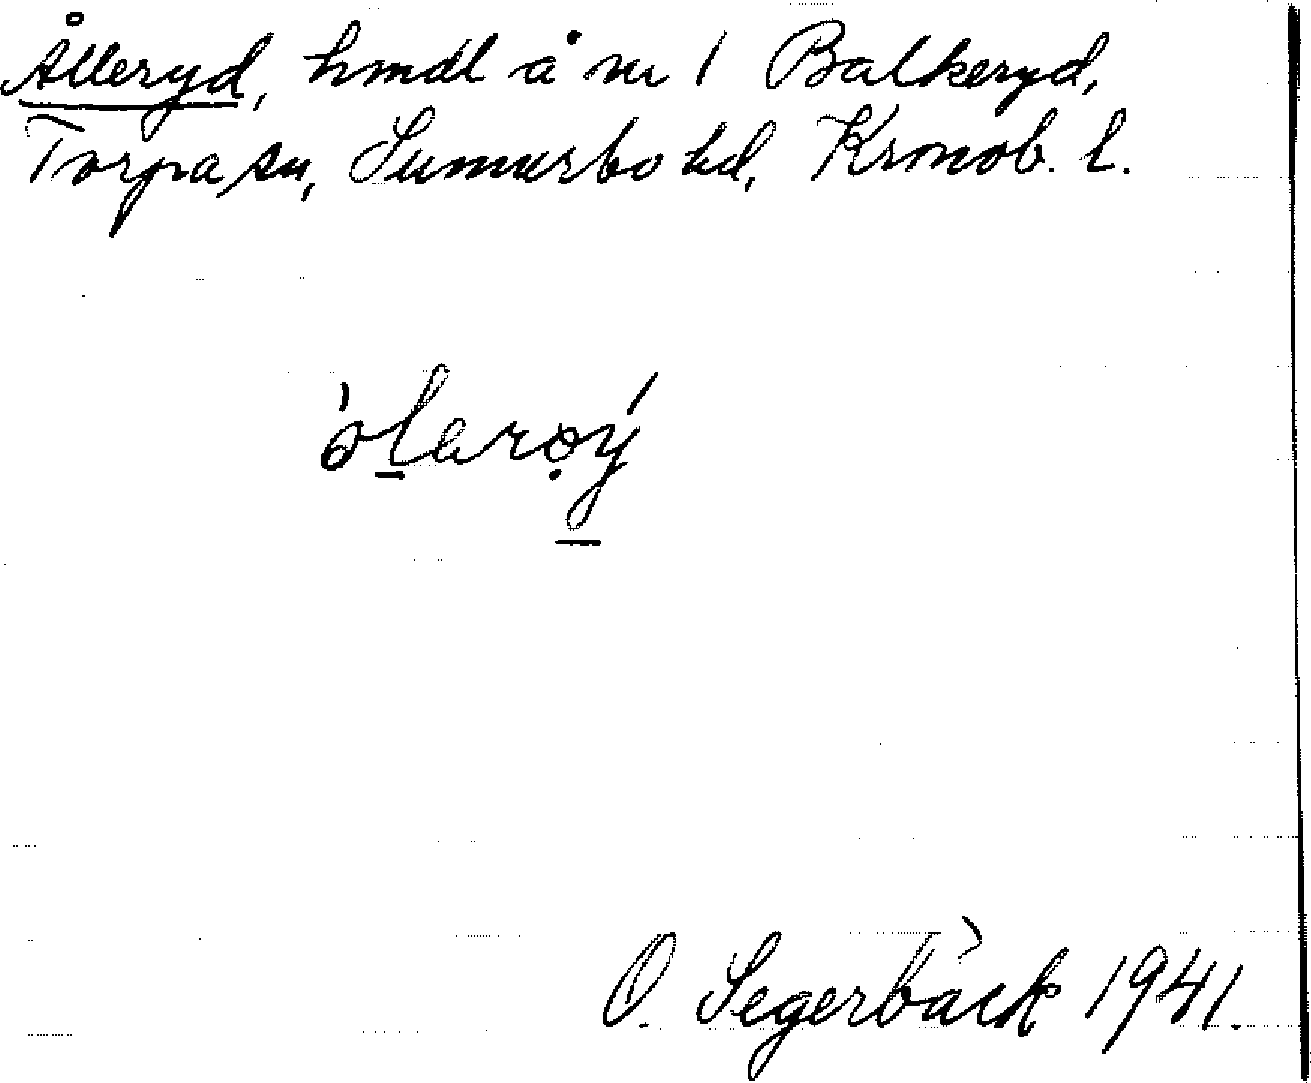 Ålleryd, hmdl å nr 1 Balkeryd,
Torpa sn, Sunnerbo hd, Kronob. l.
ó̀larøý
O. Segerbäck 1941.